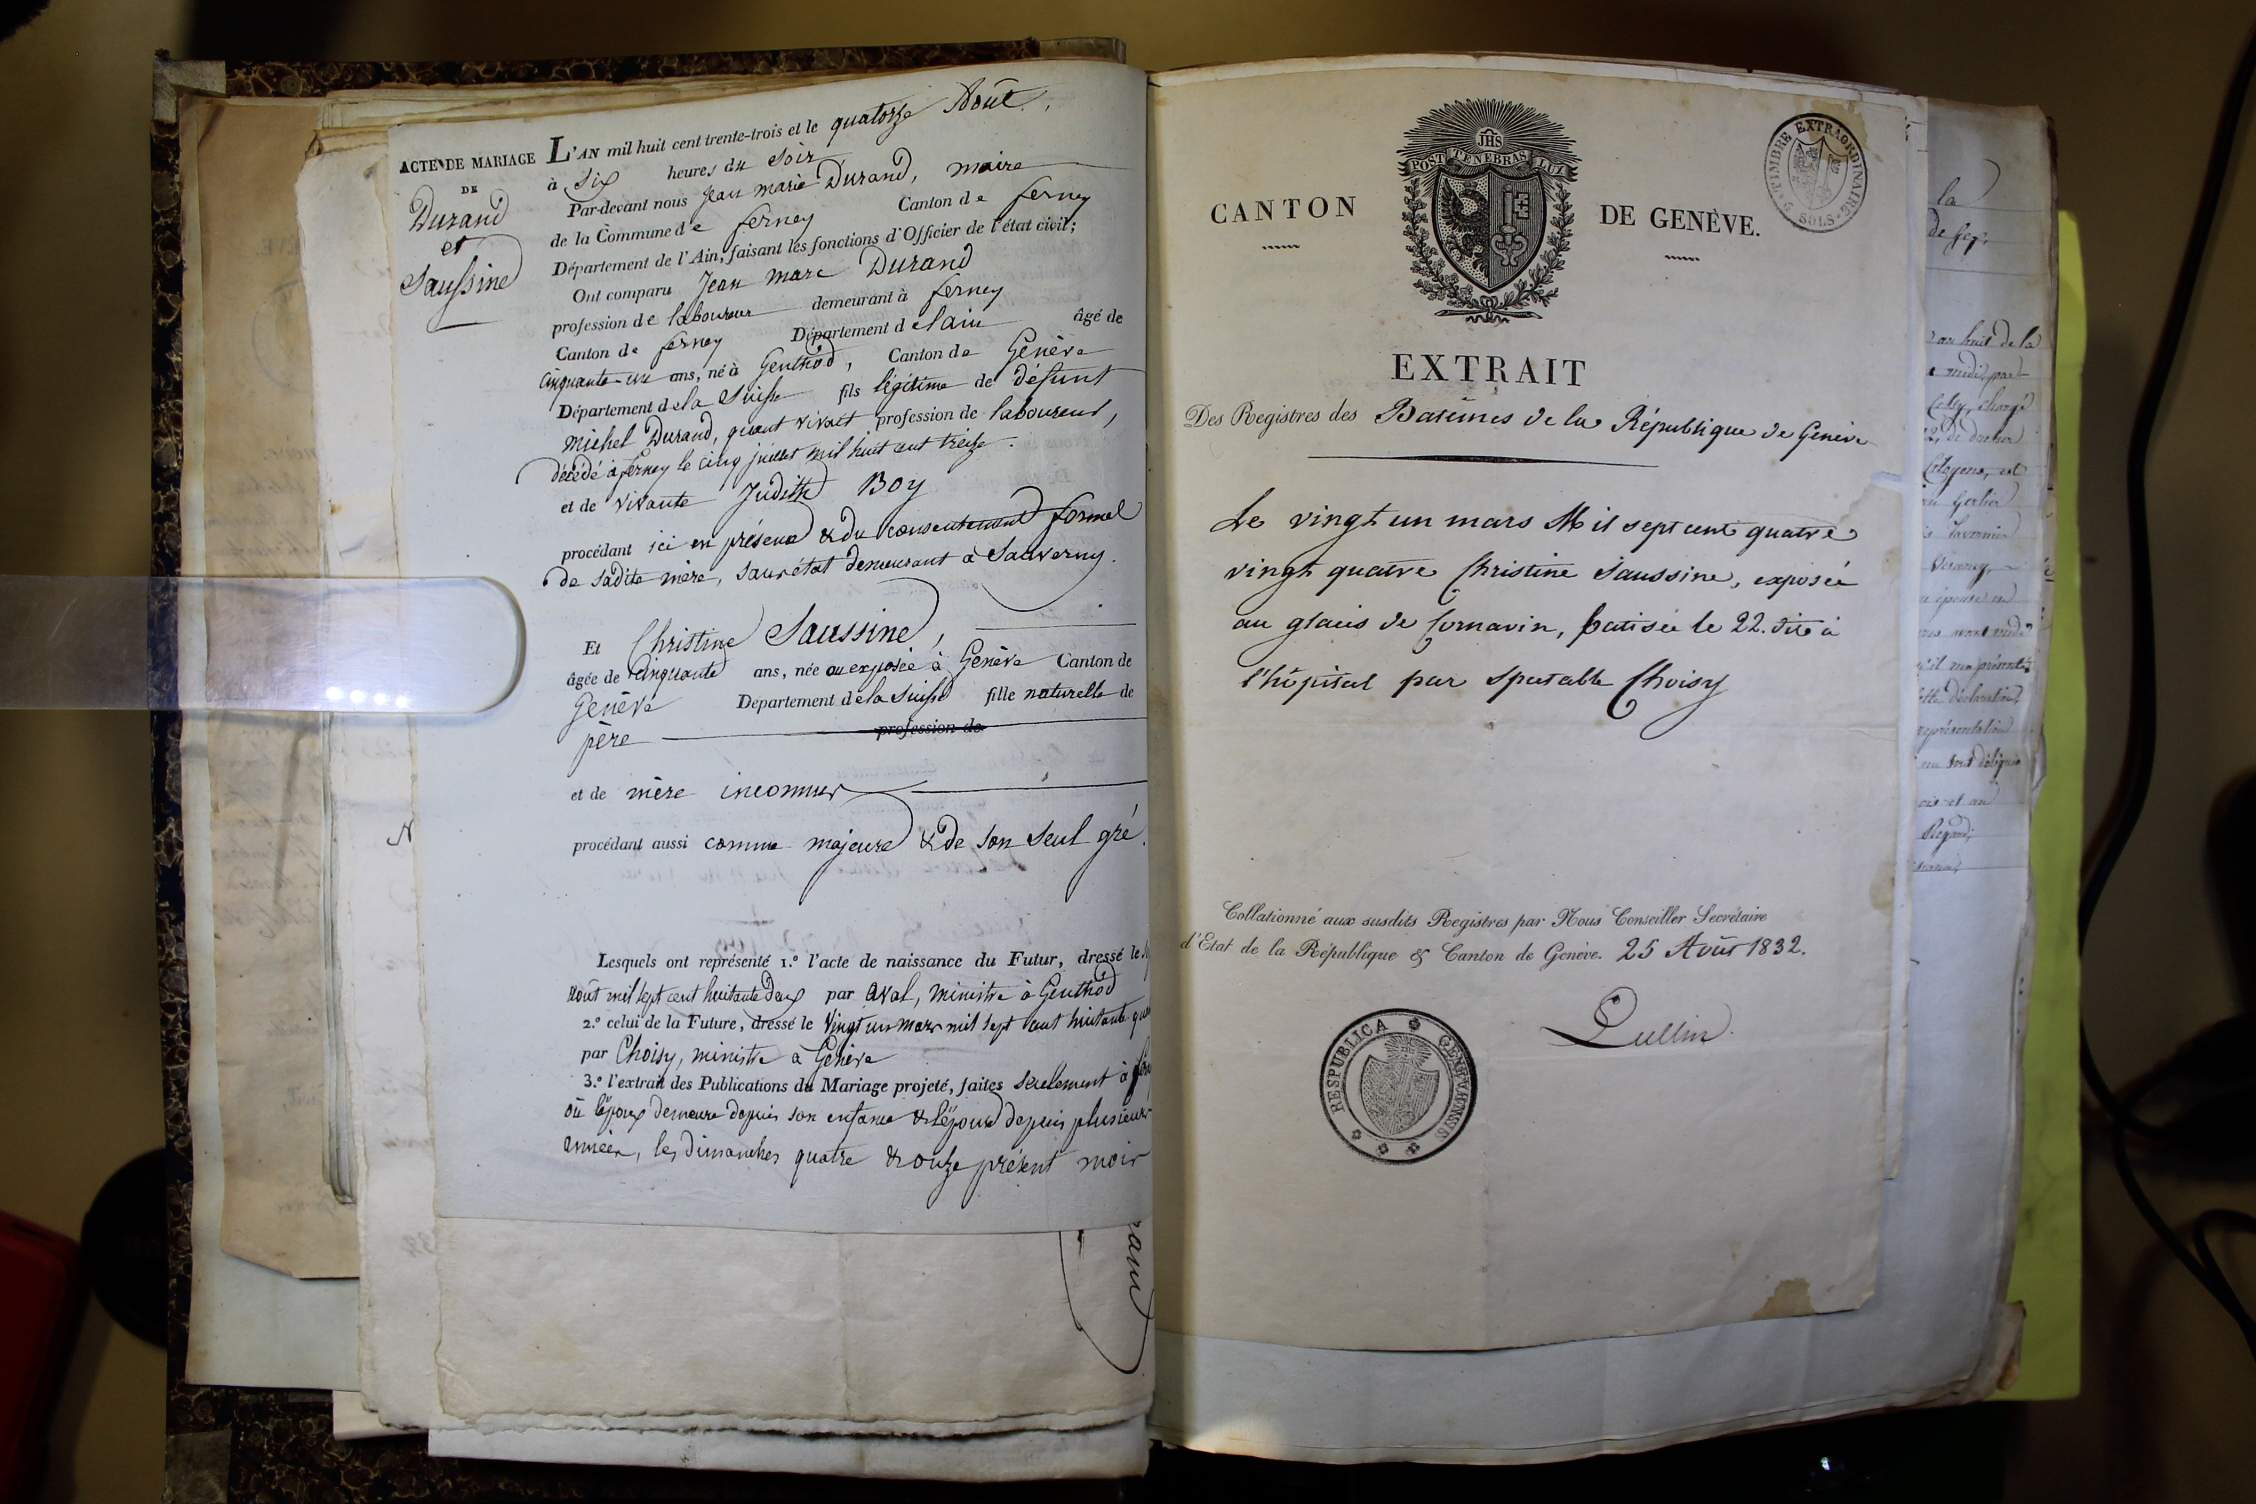 ACTE DE MARIAGE
DE
Durand
et
Saussine
L'AN mil huit cent trente-trois et le quatorze Août,
à six heures du soir
Par-devant nous Jean marie Durand, maire
de la Commune de ferney Canton de ferney
Département de l'Ain, faisant les fonctions d'Officier de l'état civil;
Ont comparu Jean Marc Durand
profession de laboureur demeurant à ferney
Canton de ferney Département de lain âgé de
cinquante-un ans, né à Genthod, Canton de Genève
Département de la Suisse fils légitime de défunt
Michel Durand, quant vivait profession de laboureur,
décédé à ferney le cinq juillet mil huit cent treize.
et de vivante Judith Boy
procédant ici en présence & du consentement formel
de sadite mère, sans état demeurant à Sauverny.
Et Christine Saussine,
âgée de Cinquante ans, née ou exposée à Genève Canton de
Genève Département de la Suisse fille naturelle de
père profession de
et de mère inconnus
procédant aussi comme majeure & de son seul gré.
Lesquels ont représenté 1.º l'acte de naissance du Futur, dressé le
Août mil sept cent huitante deux par Aval, ministre à Genthod
2.º celui de la Future, dressé le Vingt un Mars mil sept cent huitante
par Choisy, ministre à Genève
3.º l'extrait des Publications du Mariage projeté, faites seulement à
où l'époux demeure depuis son enfance & l'épouse depuis plusieurs
années, les dimanches quatre & onze présent mois
CANTON DE GENÈVE.
JHS
POST TENEBRAS LUX
TIMBRE EXTRAORDINAIRE
SOLS
EXTRAIT
Des Registres des Batêmes de la République de Genève
Le vingt un mars Mil sept cent quatre
vingt quatre Christine Saussine, exposée
au glacis de Cornavin, batisée le 22. dit à
l'hôpital par spectable Choisy
Collationné aux susdits Registres par Nous Conseiller Secrétaire
d'Etat de la République & Canton de Genève. 25 Août 1832.
Lullin.
RESPUBLICA GENEVENSIS
la
de Gex